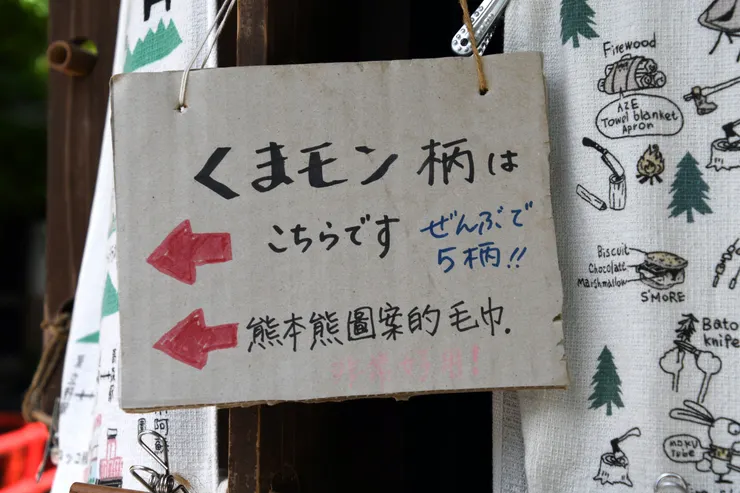 くまモン柄は
こちらです
ぜんぶで
5柄!!
熊本熊圖案的毛巾.
Firewood
AZE
Towel blanket
Apron
Biscuit
Chocolate
Marshmallow
S'MORE
Bato
knife
MOKU
Tube